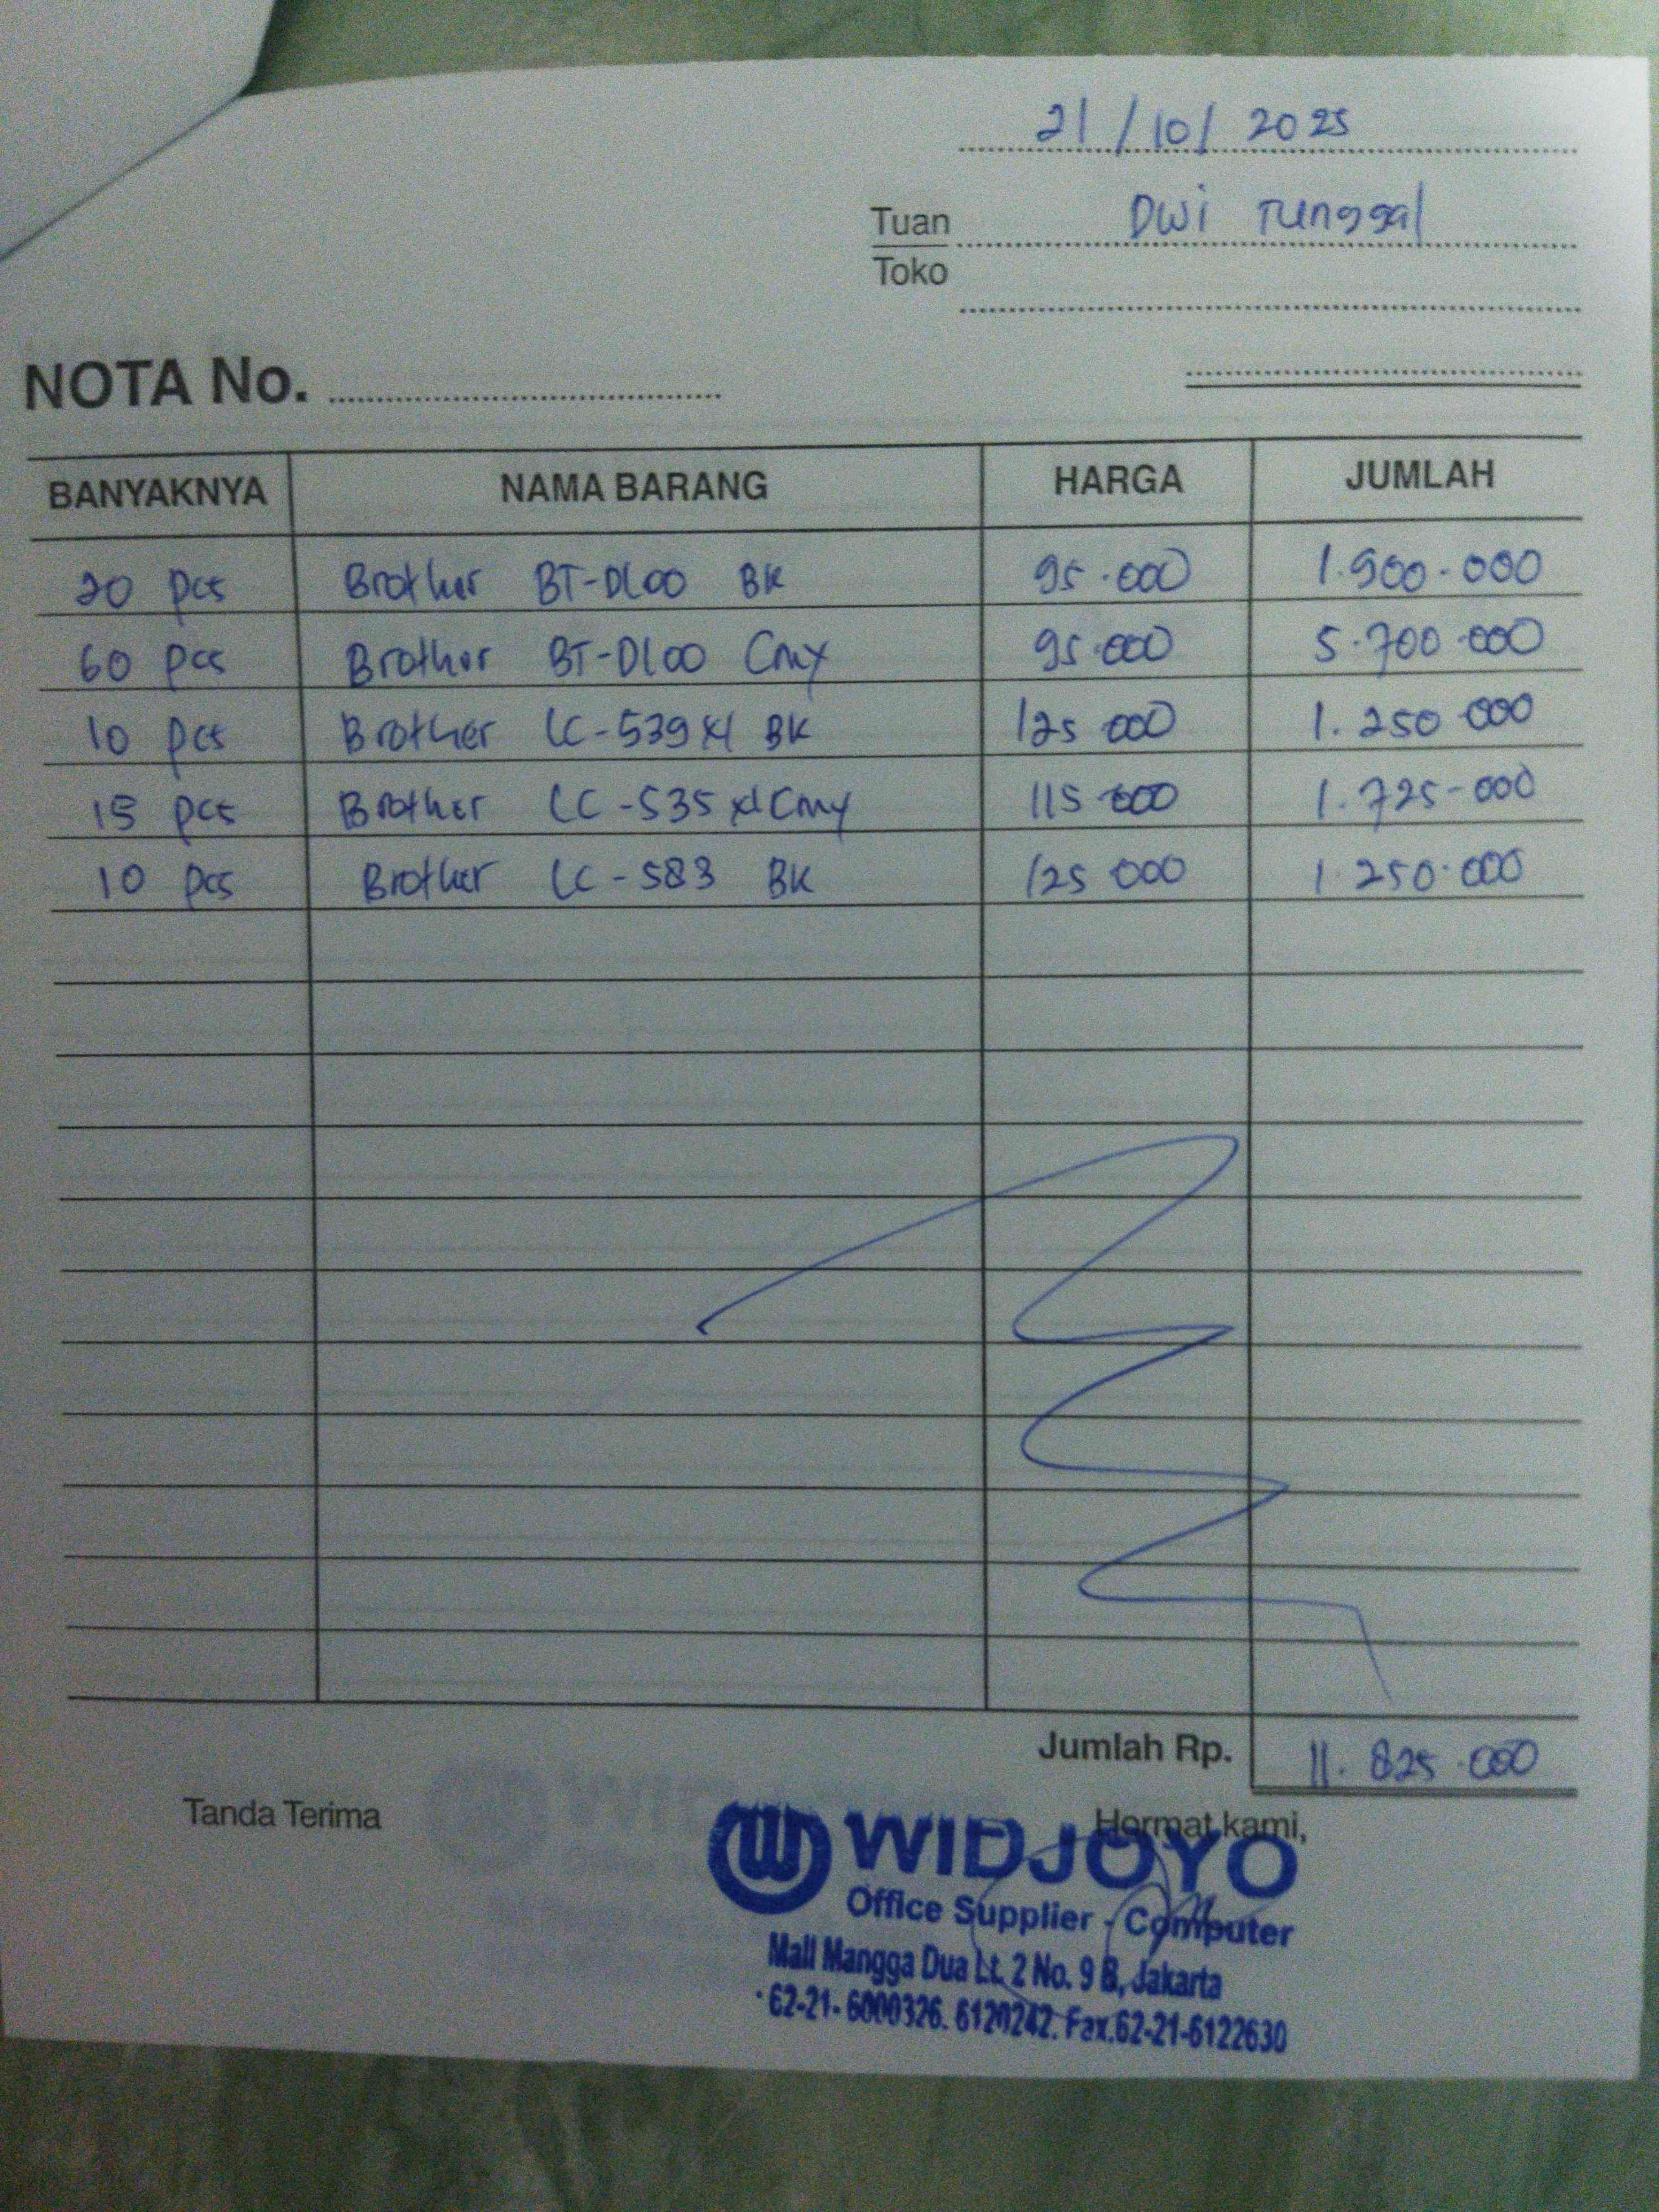 21/10/2025
Tuan Dwi Tunggal
Toko
NOTA No.
BANYAKNYA NAMA BARANG HARGA JUMLAH
20 pcs Brother BT-D100 BK 95.000 1.900.000
60 pcs Brother BT-D100 Cmy 95.000 5.700.000
10 pcs Brother LC-539 xl BK 125 000 1.250 000
15 pcs Brother LC-535 xl Cmy 115 000 1.725-000
10 pcs Brother LC-583 BK 125 000 1 250.000
Jumlah Rp. 11.825.000
Tanda Terima Hormat kami,
WIDJOYO
Office Supplier - Computer
Mall Mangga Dua Lt. 2 No. 9 B, Jakarta
62-21- 6000326. 6120242. Fax.62-21-6122630